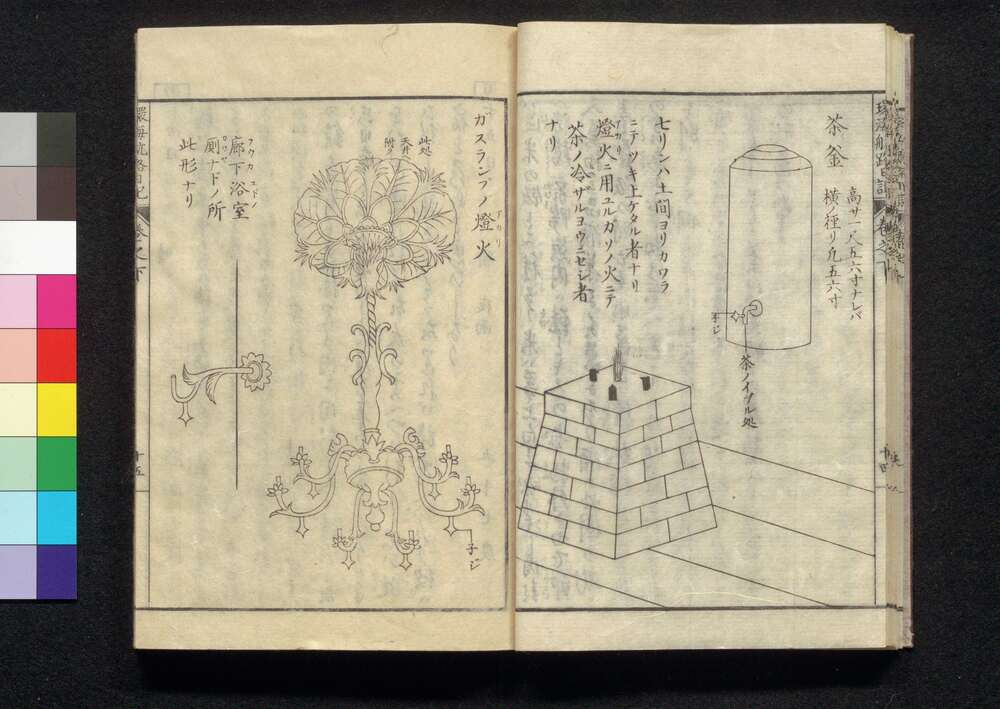 茶釜
高サ一尺五六寸ナレバ
横ノ径リ凡五六寸
子ジ
茶ノイヅル処
七リンハ土間ヨリカワラ
ニテツキ上ケタル者ナリ
アカリ
燈火ニ用ユルガソノ火ニテ
茶ノ冷サルヨウニセシ者
ナリ
ガスランプノ燈火
アカリ
此処
天井ニ
附ク
子ジ
ラウカ ユドノ
廊下浴室
カワヤ
厠ナドノ所
此形ナリ
環海航路日記
巻之下
十五